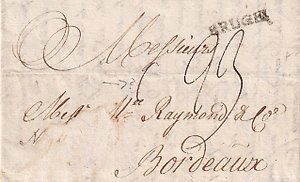 BRUGES
Messieurs
Mess.rs W.m Raymond & Co.
Bordeaux